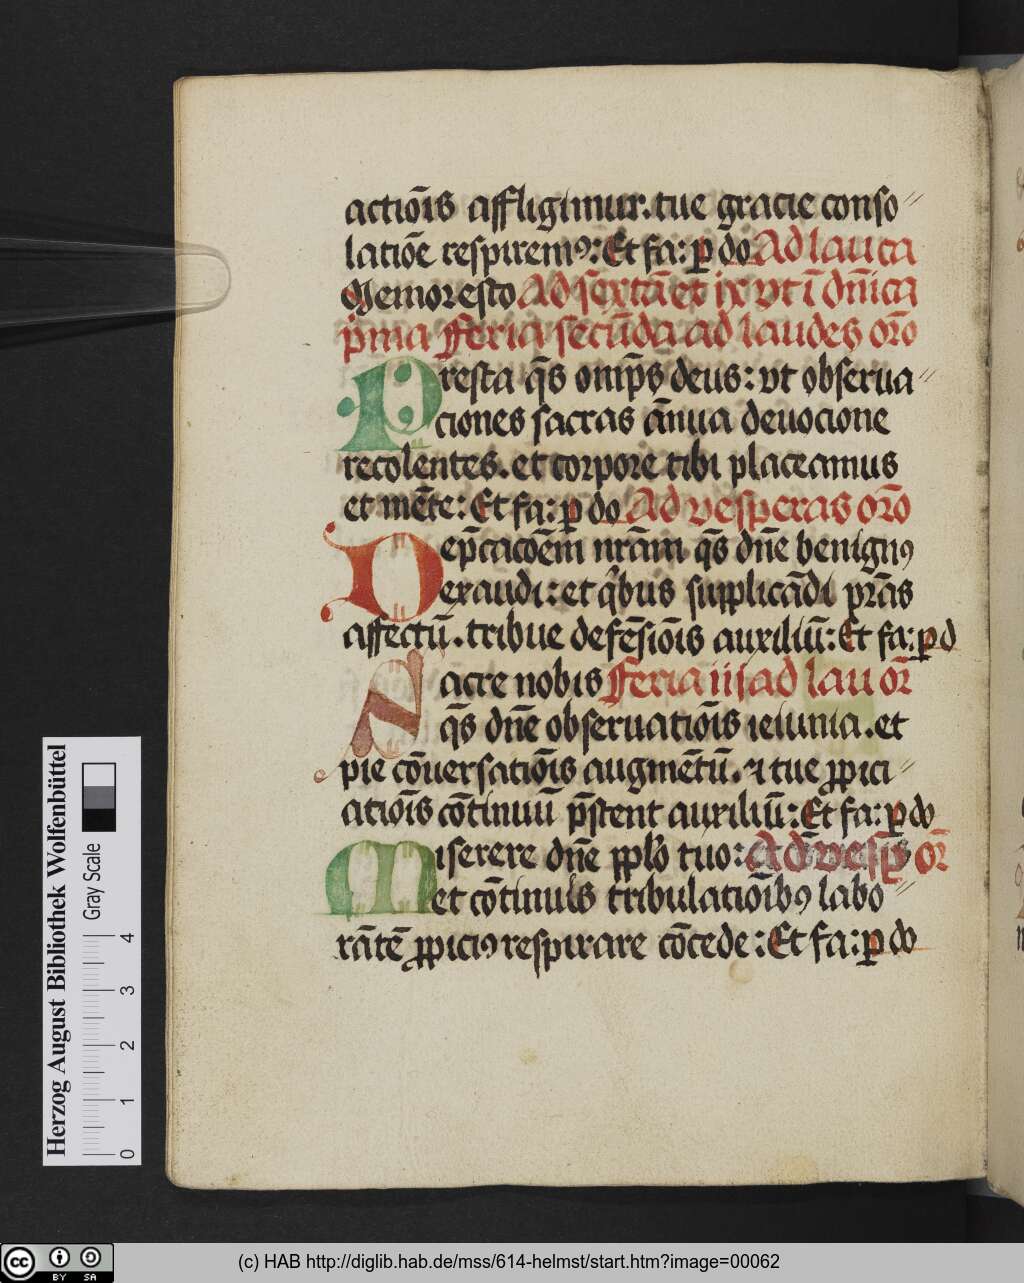 actiōis affligimur. tue gracie conso〃
latiōe respiremꝰ: Et fa: ꝑ do Ad lau ca
Memor esto Ad sextā et ix vt ī dn̄ica
p̄ma Feria secūda ad laudes orō
Presta q̄s omīps deus: vt obserua〃
ciones sacras ānua deuocione
recolentes. et corpore tibi placeamus
et mēte: Et fa: ꝑ do Ad vesperas orō
Dep̄cacōem nrām q̄s dn̄e benignꝰ
exaudi: et qͥbus supplicādi prās
affectū. tribue defēsiōis auxiliū: Et fa: ꝑ d
Nacre nobis Feria iij ad lau or̄
q̄s dn̄e obseruatiōis ieiunia. et
pie cōuersatiōis augmētū. ⁊ tue ꝓpici〃
atiōis cōtinuū p̄stent auxiliū: Et fa: ꝑ do
Miserere dn̄e pplo tuo: Ad vesꝑ or̄
et cōtinuis tribulatiōibꝰ labo〃
rātē ꝓpiciꝰ respirare cōcede: Et fa: ꝑ do
Herzog August Bibliothek Wolfenbüttel
Gray Scale
0 1 2 3 4
cc BY SA
(c) HAB http://diglib.hab.de/mss/614-helmst/start.htm?image=00062